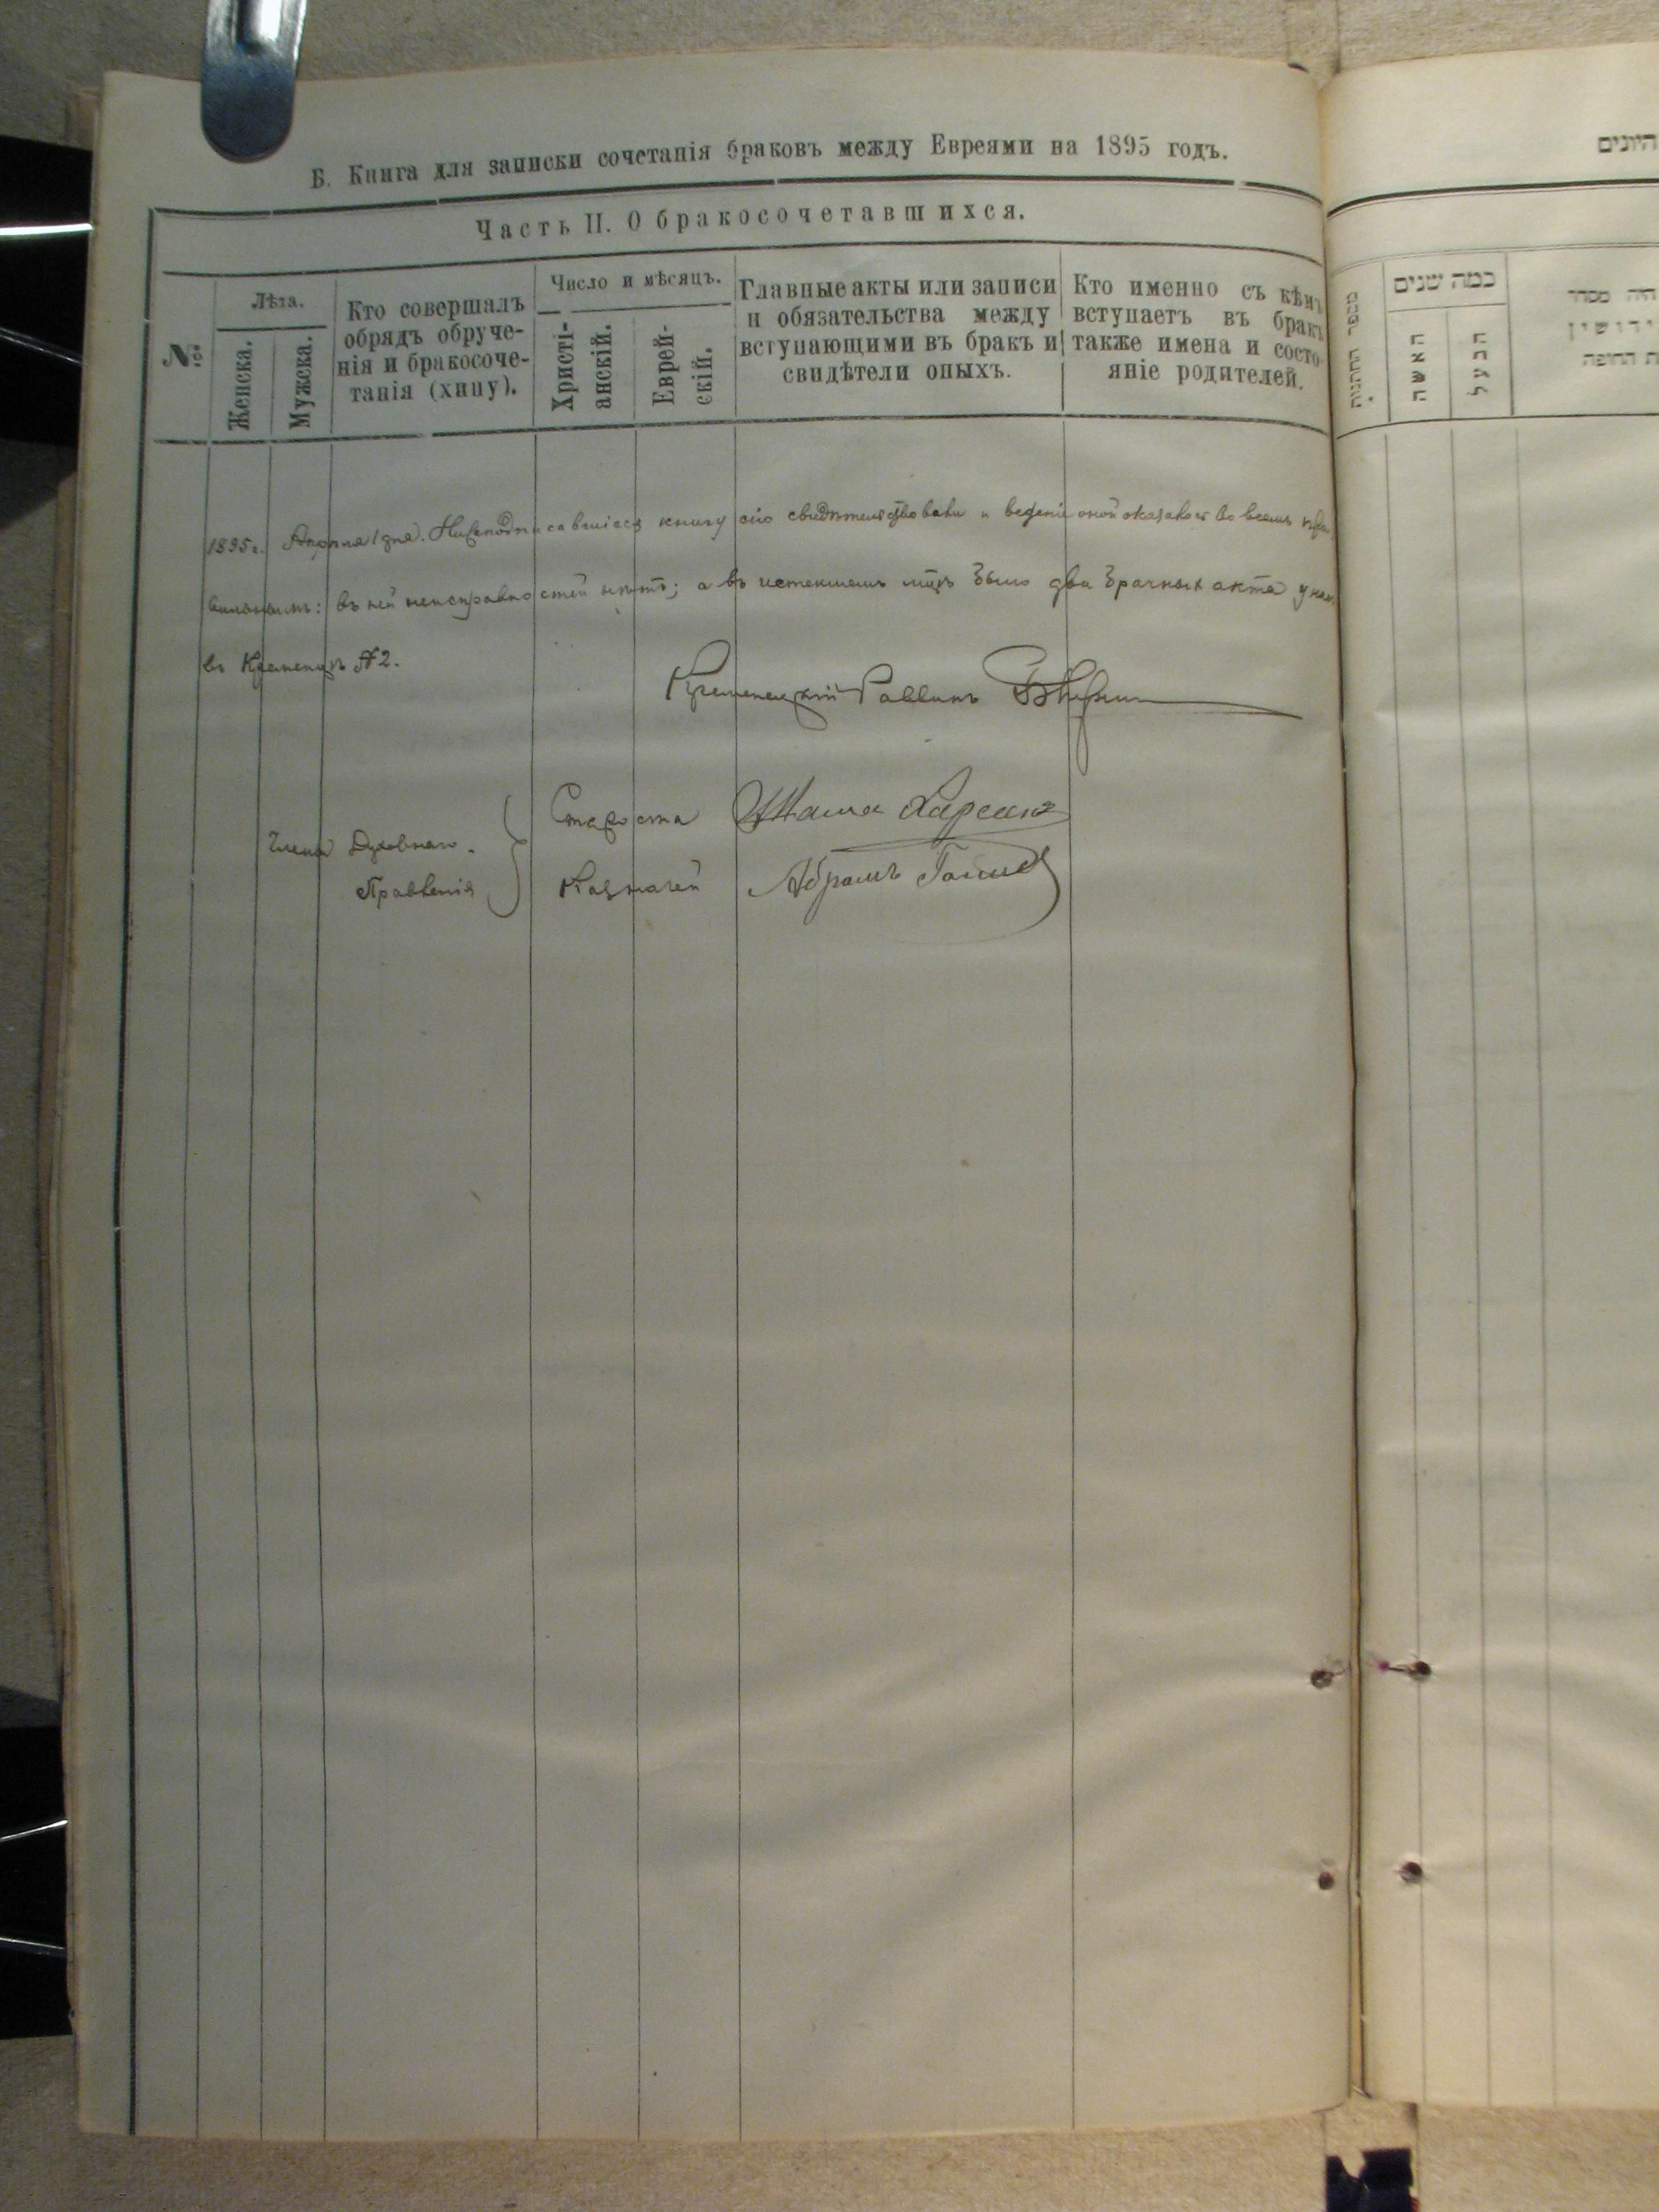 Б. Книга для записки сочетанія браковъ между Евреями на 1895 годъ.
Часть II. О бракосочетавшихся.
№
Лѣта.
Женска.
Мужска.
Кто совершалъ
обрядъ обруче-
нія и бракосоче-
танія (хипу).
Число и мѣсяцъ.
Христі-
анскій.
Еврей-
скій.
Главные акты или записи
и обязательства между
вступающими въ бракъ и
свидѣтели оныхъ.
Кто именно съ кѣмъ
вступаетъ въ бракъ
также имена и состо-
яніе родителей.
1895 г. Апрѣля 1 дня. Нижеподписавшіеся книгу сію свидѣтельствовали и веденіе оной оказалось во всемъ пра
вильнымъ: въ ней неисправностей нѣтъ; а въ истекшемъ мцѣ было два брачныхъ акта у нас
въ Кременцѣ № 2.
Кременецкій Раввинъ
Члены Духовнаго
Правленія
Староста
Казначей Абрамъ
היונים
מספר החתנות
כמה שנים
האשה
הבעל
היה מסדר
קידושין
ת החופה